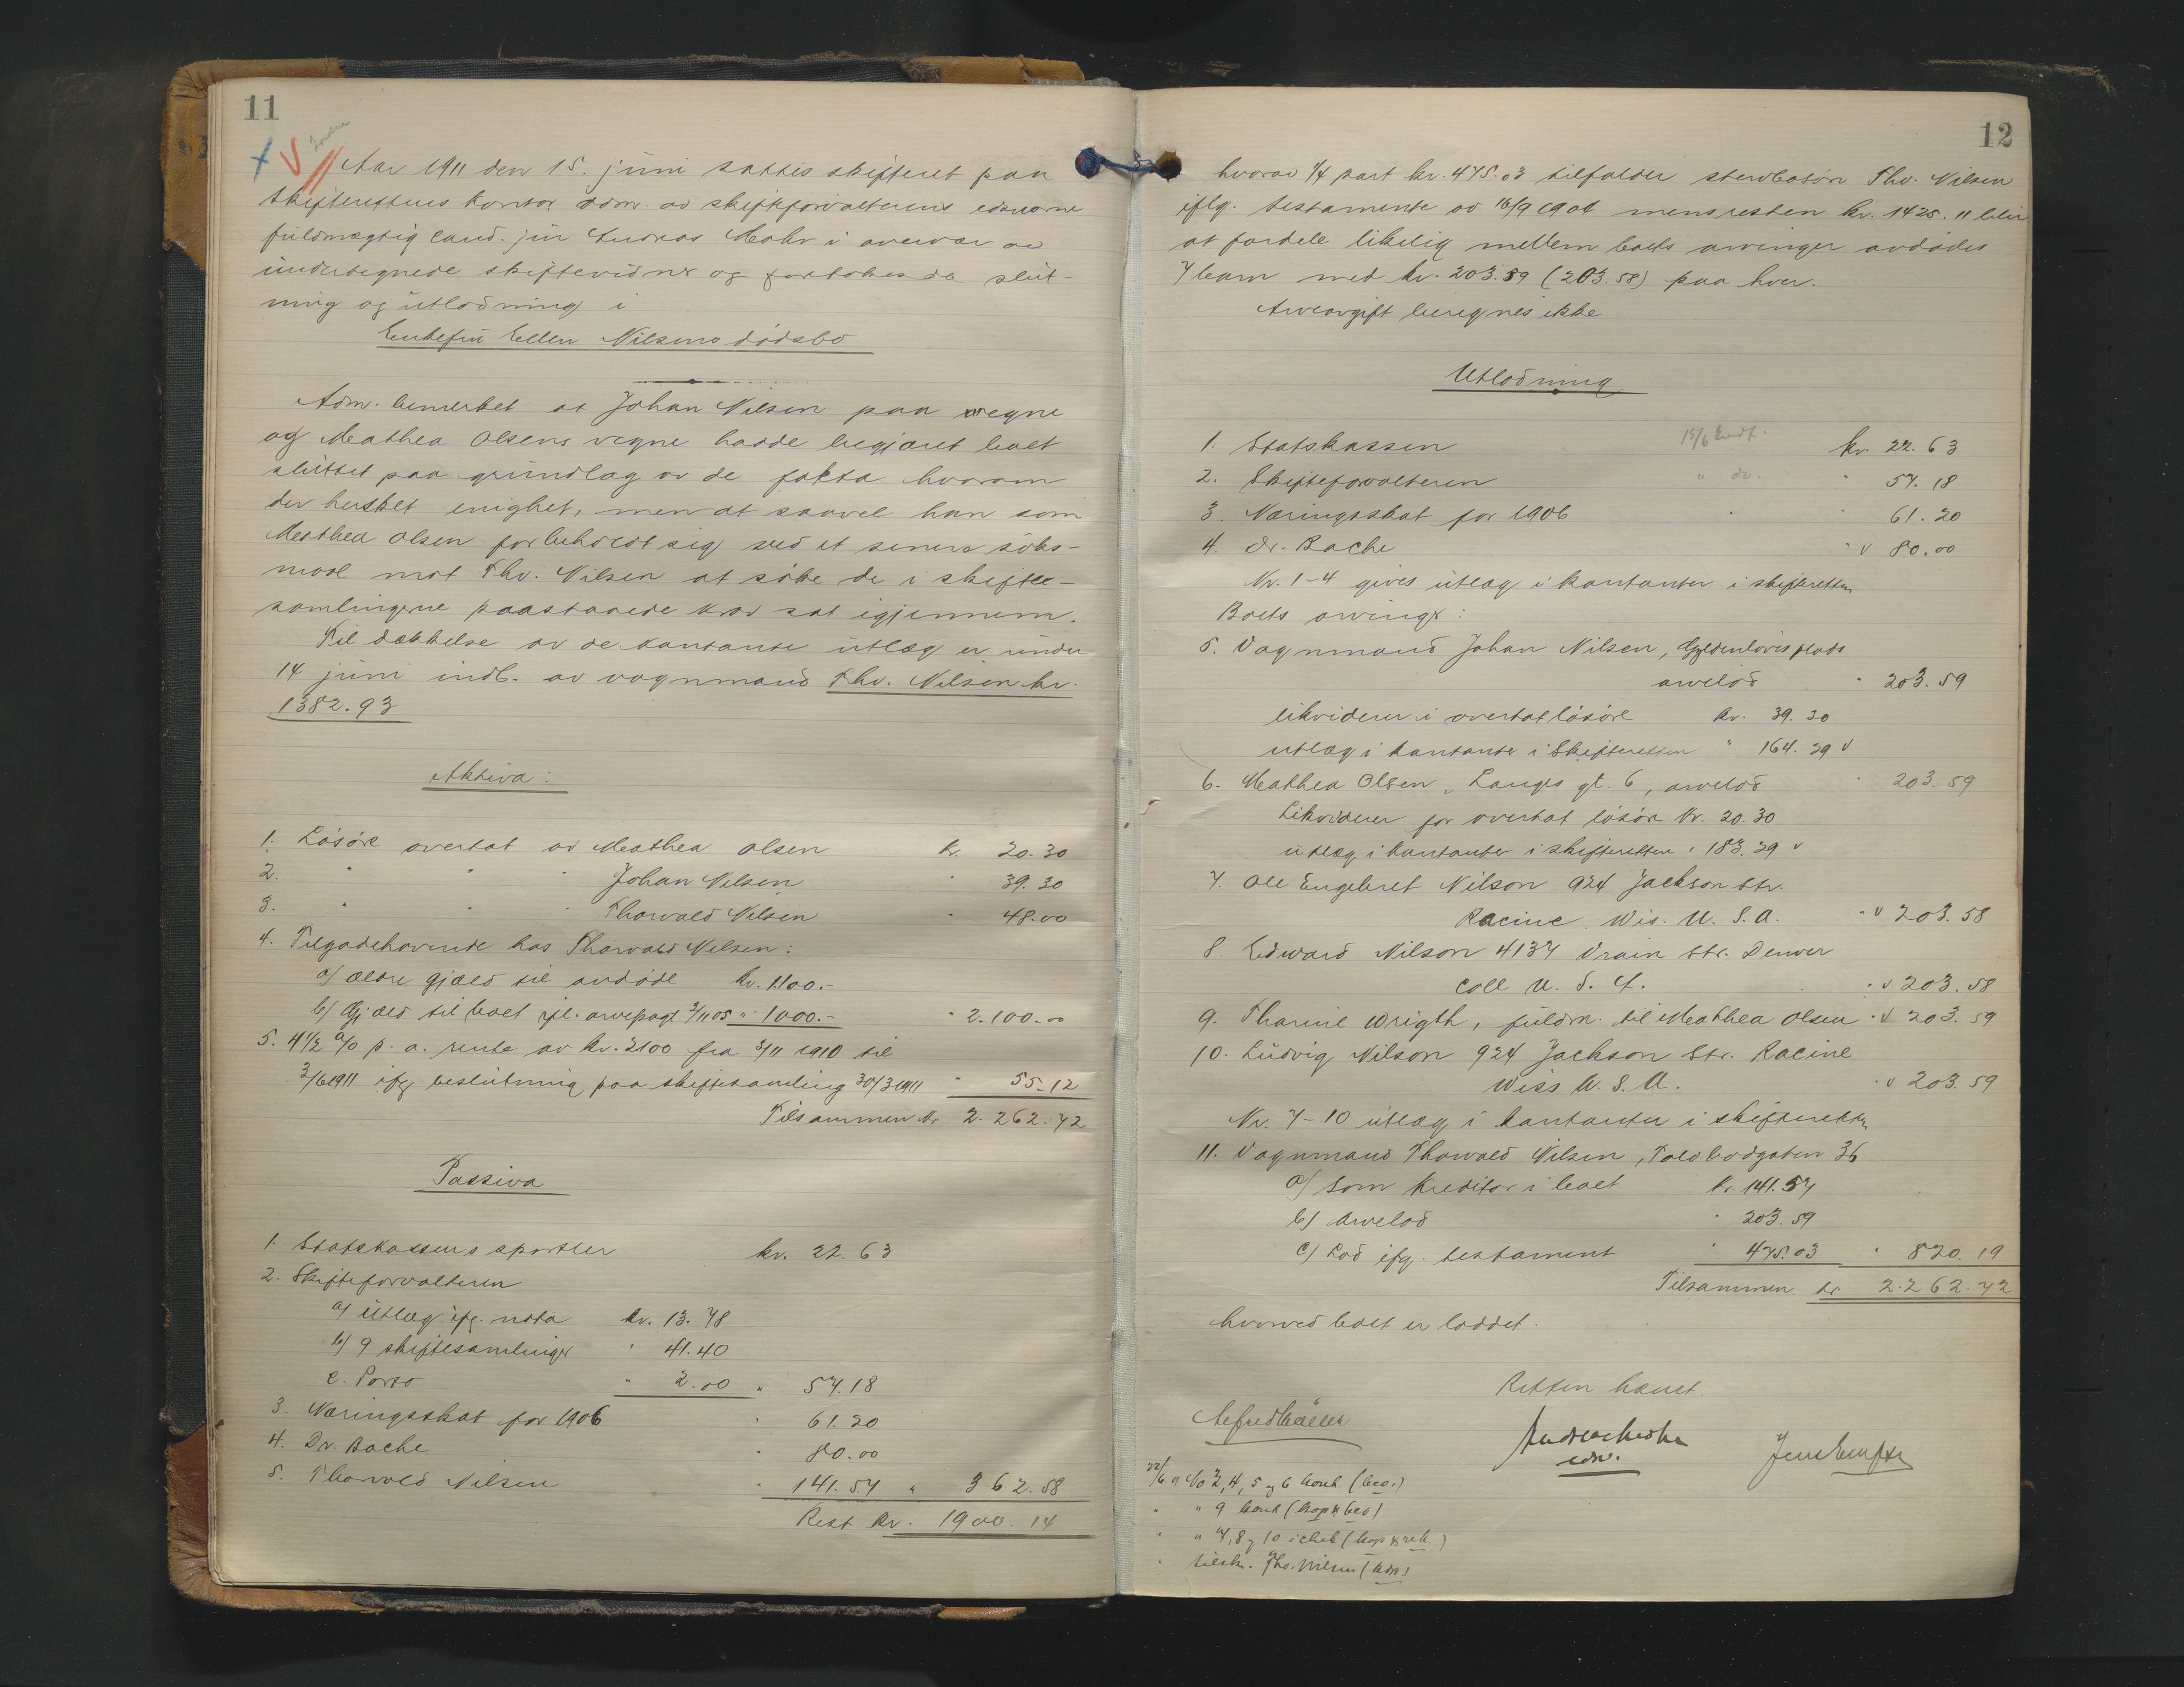 11
Aar 1911 den 15. juni sattes skifteret paa
skifterettens kontor adm. av skifteforvalterens edsvorne
fuldmægtig cand. jur Andreas Mohr i overvær av
undertegnede skiftevidner og foretokes da slut-
ning og utlodning i
Enkefru Ellen Nilsens dødsbo
Adm. bemerket at Johan Nilsen paa egne
og Mathea Olsens vegne hadde begjæret boet
sluttet paa grundlag av de fakta hvorom
der hersket enighet, men at saavel han som
Mathea Olsen forbeholdt sig ved et senere søks-
maal mot Thv. Nilsen at søke de i skifte-
samlingerne paastaaede krav sat igjennem.
Til dækkelse av de kontante utlæg er under
14 juni indb. av vognmand Thv. Nilsen kr.
1382.93
Aktiva:
1. Løsøre overtat av Mathea Olsen kr. 20.30
2. " " " Johan Nilsen " 39.30
3. " " " Thorvald Nilsen " 48.00
4. Tilgodehavende hos Thorvald Nilsen:
a/ ældre gjæld til avdøde kr. 1100.-
b/ Gjæld til boet ifl. arvepagt 3/11 05 " 1000.- " 2.100.00
5. 4 1/2 % p. a. rente av kr. 2100 fra 3/11 1910 til
3/6 1911 ifg beslutning paa skiftesamling 30/3 1911 " 55.12
Tilsammen kr 2.262.72
Passiva
1. Statskassens sportler kr. 22.63
2. Skifteforvalteren
a/ Utlæg ifg. nota kr. 13.78
b/ 9 skiftesamlinger " 41.40
c. Porto " 2.00 " 57.18
3. Næringsskat for 1906 " 61.20
4. Dr. Bache " 80.00
5. Thorvald Nilsen " 141.57 " 362.58
Rest kr. 1900.14
12
hvorav 1/4 part kr. 475.03 tilfalder stervbosøn Thv. Nilsen
iflg. testamente av 16/9 1904 mens resten kr. 1425.11 blir
at fordele likelig mellem boets arvinger avdødes
7 barn med kr. 203.59 (203.58) paa hver.
Arveavgift beregnes ikke
Utlodning
1. Statskassen 15/6 kr. 22.63
2. Skifteforvalteren " do. " 57.18
3. Næringsskat for 1906 " " 61.20
4. dr. Bache " v 80.00
Nr. 1-4 gives utlæg i kontanter i skifteretten
Boets arvinger:
5. Vognmand Johan Nilsen, Gyldenløves plads
arvelod " 203.59
likviderer i overtat løsøre kr. 39.30
utlæg i kontanter i Skifteretten " 164.29 v
6. Mathea Olsen, Langes gt. 6, arvelod " 203.59
Likviderer for overtat løsøre kr. 20.30
utlæg i kontanter i skifteretten " 183.29 v
7. Ole Engebret Nilson 924 Jackson Str.
Racine. Wis. U. S. A. " v 203.58
8. Edward Nilson 4137 Vrain Str. Denver
Coll U. S. A. " v 203.58
9. Tharine Wrigth, fuldm. til Mathea Olsen " v 203.59
10. Ludvig Nilson 924 Jackson Str. Racine
Wiss U. S. A. " v 203.59
Nr. 7-10 utlæg i kontanter i skifteretten
11. Vognmand Thorvald Nilsen, Toldbodgaten 36
a/ som kreditor i boet kr. 141.57
b/ Arvelod " 203.59
c/ Lod ifg. testament " 475.03 " 820.19
Tilsammen kr 2.262.72
hvorved boet er loddet.
Retten hævet.
Andreas Mohr
edsv.
22/6 11 No 3, 4, 5 og 6 kont. (bco.)
" " 9 kont (kop & bco)
" " 7, 8 og 10 i chek (kop & rek.)
" tilsk. Thv. Nilsen (kop)